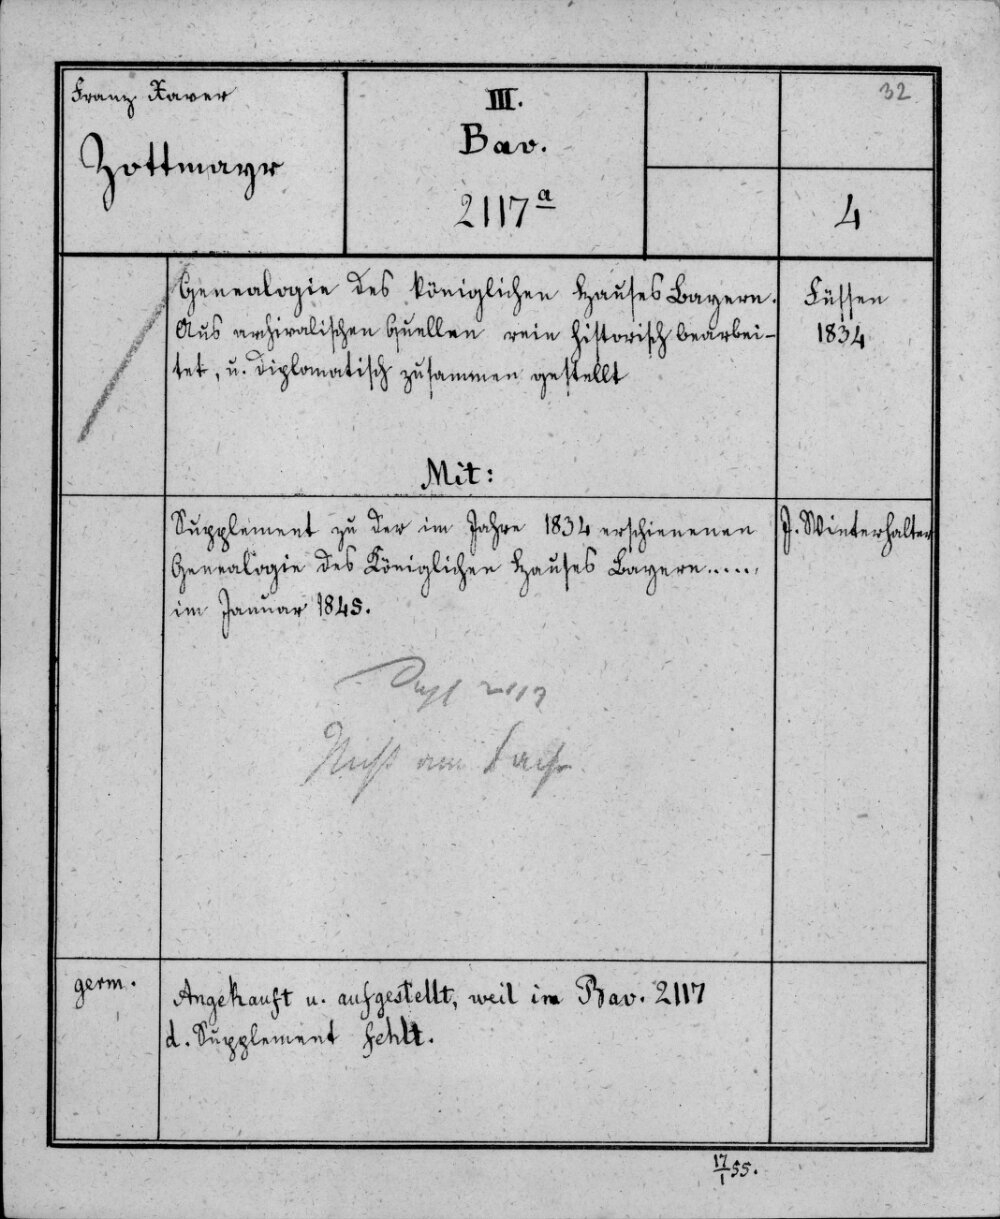 Franz Xaver
Zottmayr
III.
Bav.
2117 a
32
4
Genealogie des königlichen Hauses Bayern.
Aus archivalischen Quellen rein historisch bearbei-
tet, u. diplomatisch zusammen gestellt
Füssen
1834
Mit:
Supplement zu der im Jahre 1834 erschienenen
Genealogie des Königlichen Hauses Bayern.....
im Januar 1845.
J. Winterhalter
2117
germ.
Angekauft u. aufgestellt, weil in Bav. 2117
d. Supplement fehlt.
17/1 55.